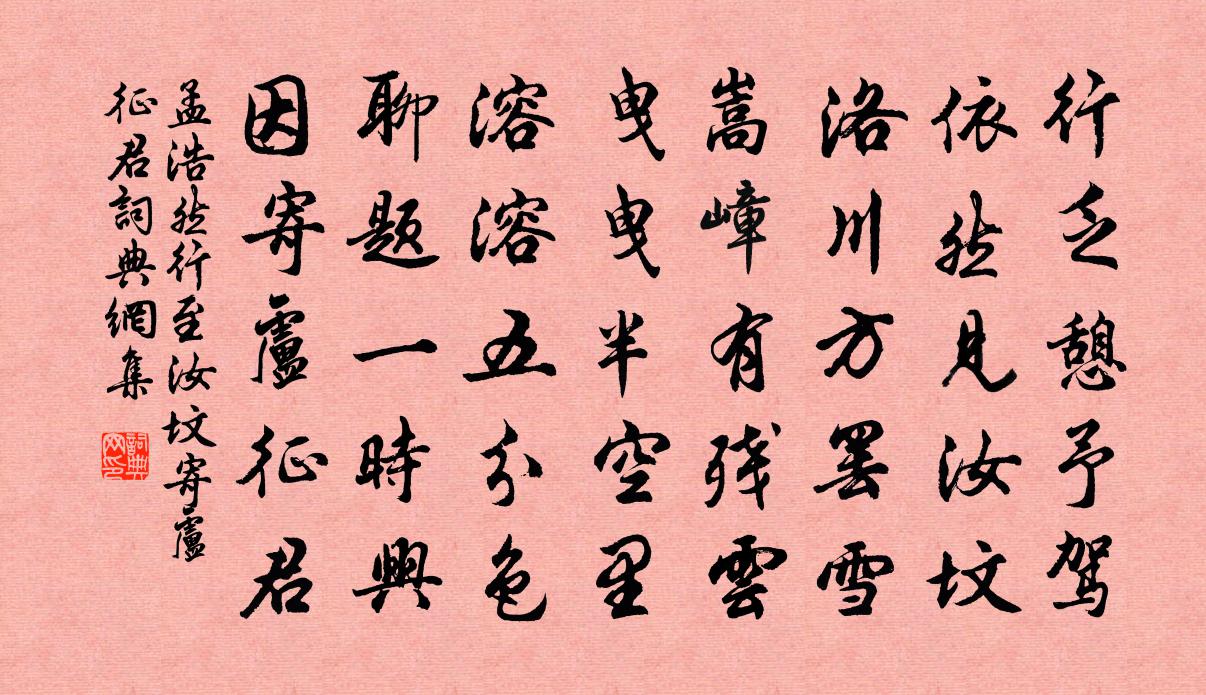 行乏憩予驾
依然见汝坟
洛川方罢雪
嵩嶂有残雲
曳曳半空里
溶溶五分色
聊题一時興
因寄盧征君
孟浩然行至汝坟寄盧
征君詞典網集
詞典网印